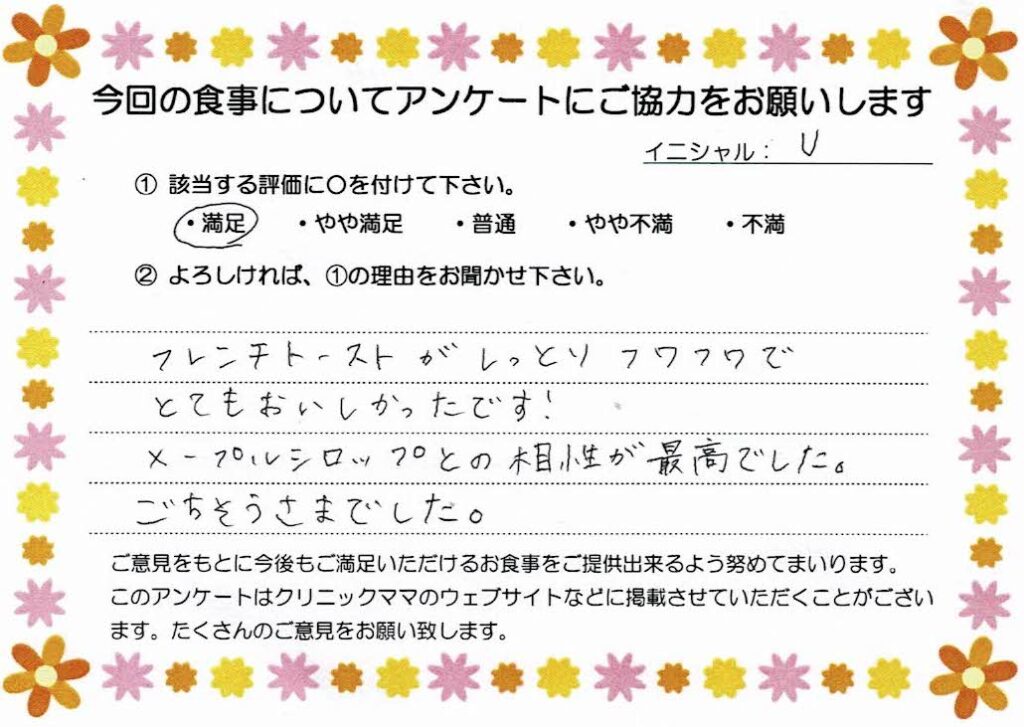 今回の食事についてアンケートにご協力をお願いします
イニシャル： U
① 該当する評価に○を付けて下さい。
・満足 ・やや満足 ・普通 ・やや不満 ・不満
② よろしければ、①の理由をお聞かせ下さい。
フレンチトーストがしっとりフワフワで
とてもおいしかったです!
メープルシロップとの相性が最高でした。
ごちそうさまでした。
ご意見をもとに今後もご満足いただけるお食事をご提供出来るよう努めてまいります。
このアンケートはクリニックママのウェブサイトなどに掲載させていただくことがござい
ます。たくさんのご意見をお願い致します。